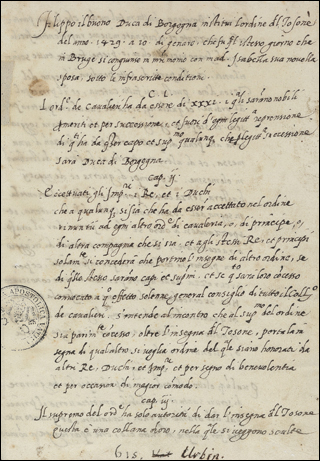 Filippo il buono Duca di Borgogna institui l'ordine dl Tosone
del anno. 1429. a 10. di genaro, che fu il istesso giorno che
in Bruge si congiunse in mrimonio con mad. Isabella sua novella
sposa. sotto le infrascritte conditioni.
C. i.
L'ord.e de Cavalieri ha da essere di XXXI. i qli sarano nobili
di qsti ha da esser capo et sup.mo qualunq, che
sarà Duca di Borgogna.
cap. ij.
Eccettuati gli Imp.ri i Re, et i Duchi
che a qualunq, si sia che ha da esser accettato nel ordine
rinuntii ad ogni altro ord.e di cavaleria, o, di prencipe, o,
di altra compagnia che si sia. et agli stessi Re, et prencipi
solam.te si concederà che portino l'insegne di altro ordine, se
di qllo stesso sarano capi et sup.mi. et se
convocato a qsto effetto solenne general consiglio di tutto il
de cavalieri. s'intende al incontro che al sup.mo del ordine
sia parim.te cocesso, oltre l'insegna dl Tosone, portar la in
segna di qualaltro si voglia ordine del qle siano honorati
altri Re, Duchi, et Imp.ri et per segno di benevolentia
et per occasion di magior comodo.
cap. iij.
Il supremo del ord.e ha solo autorità di dar l'insegna dl Tosone
quella è una collana d'oro, nella qle si veggono scolte
Urbin.